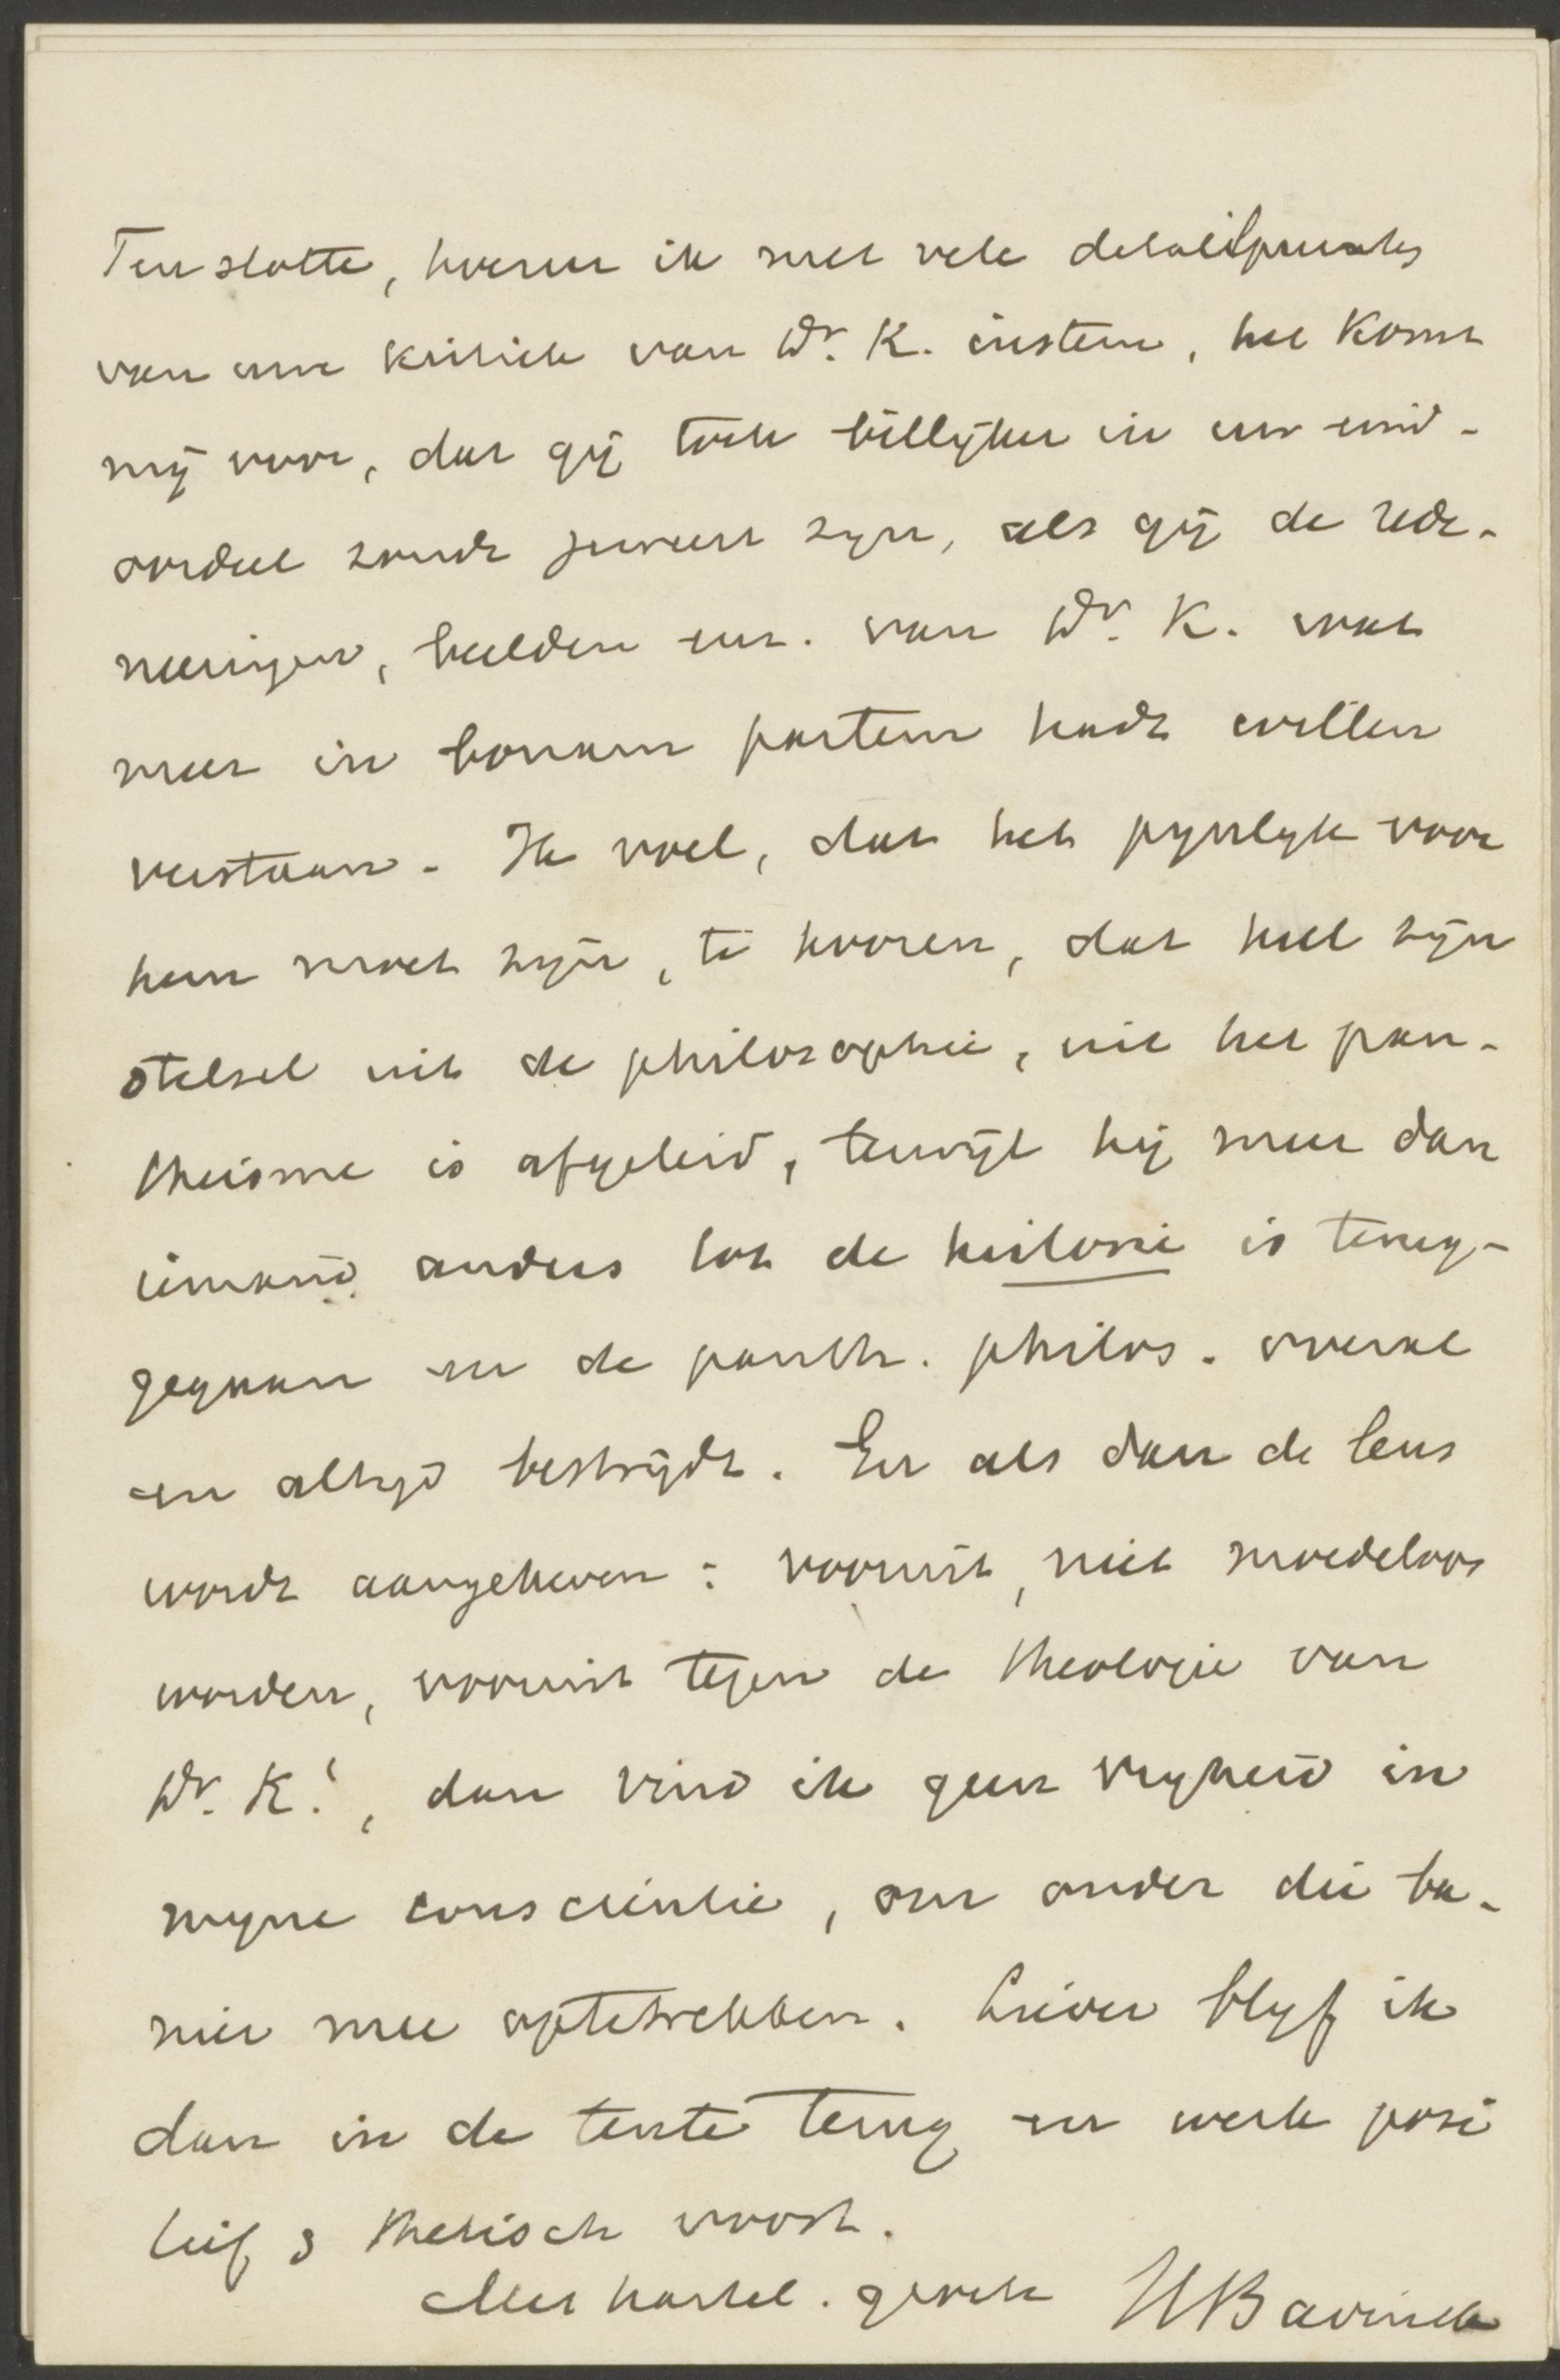 Ten slotte, hoezeer ik met vele detailpunten
van uwe kritiek van Dr. K. instem, het komt
mij voor, dat gij toch billijker in uw eind-
oordeel zoudt geweest zijn, als gij de rede-
neeringen, beelden enz. van Dr. K. wat
meer in bonam partem hadt willen
verstaan. Ik voel, dat het pynlyk voor
hem moet zijn, te hooren, dat heel zijn
stelsel uit de philosophie, uit het pan-
theisme is afgeleid, terwijl hij meer dan
iemand anders tot de historie is terug-
gegaan en de panth. philos. overal
en altyd bestrijdt. En als dan de leus
wordt aangeheven: vooruit, niet moedeloos
worden, vooruit tegen de theologie van
Dr. K!, dan vind ik geen vryheid in
myne conscientie, om onder die ba-
nier mee optetrekken. Liever blyf ik
dan in de tente terug en werk posi
tief & thetisch voort.
Met hartel. groete HBavinck